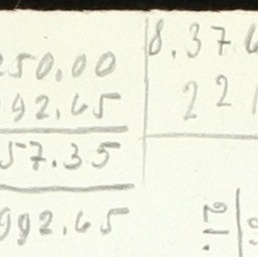 250.00
92.65
57.35
992.65
8.376
221